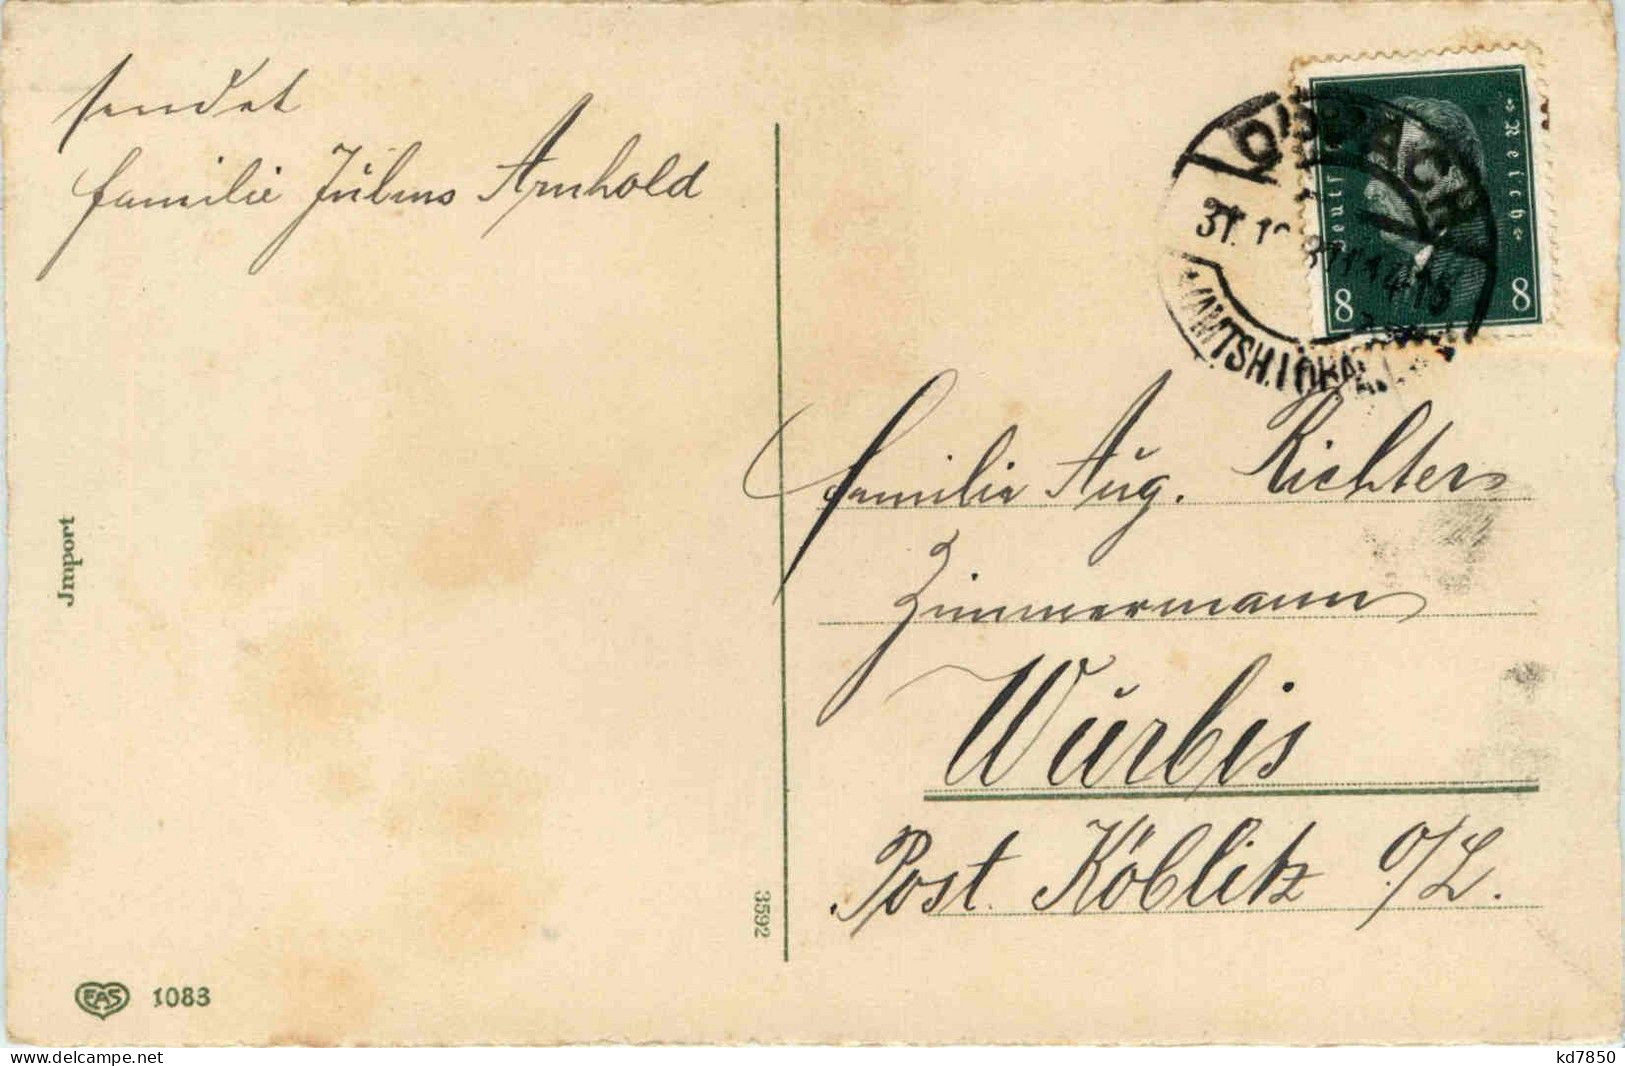 sendet
Familie Julius Arnhold
OPPACH
31.
14-15
AMTSH.
Deutsches Reich
8 8
Familie Aug. Richter
Zimmermann
Würbis
Post Köblitz O/L.
Import
3592
EAS 1083
www.delcampe.net
kd7850